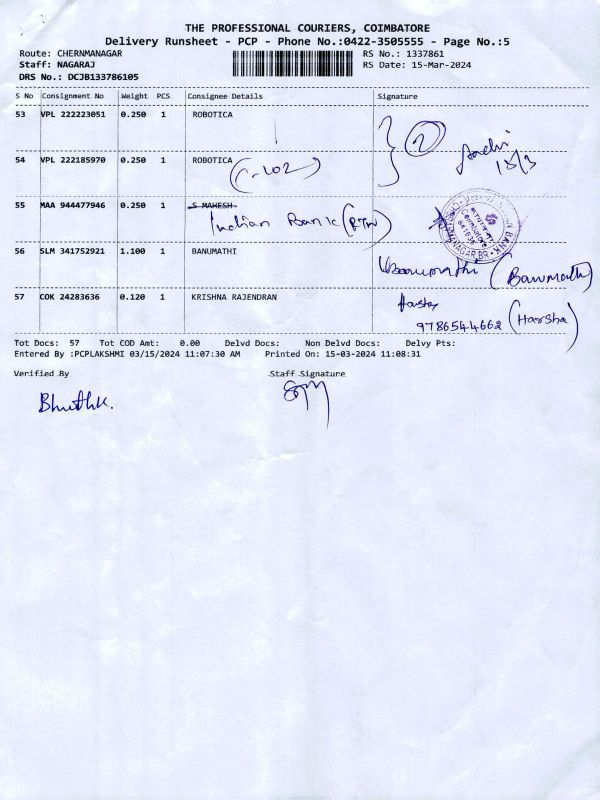 THE PROFESSIONAL COURIERS, COIMBATORE
Delivery Runsheet - PCP - Phone No.:0422-3505555 - Page No.:5
Route: CHERNMANAGAR RS No.: 1337861
Staff: NAGARAJ RS Date: 15-Mar-2024
DRS No.: DCJB133786105
S No Consignment No Weight PCS Consignee Details Signature
53 VPL 222223051 0.250 1 ROBOTICA
2
54 VPL 222185970 0.250 1 ROBOTICA
15/3
55 MAA 944477946 0.250 1 S MAHESH
Indian Bank
56 SLM 341752921 1.100 1 BANUMATHI
(Banumathi)
57 COK 24283636 0.120 1 KRISHNA RAJENDRAN
9786544662 (Harsha)
Tot Docs: 57 Tot COD Amt: 0.00 Delvd Docs: Non Delvd Docs: Delvy Pts:
Entered By :PCPLAKSHMI 03/15/2024 11:07:30 AM Printed On: 15-03-2024 11:08:31
Verified By Staff Signature